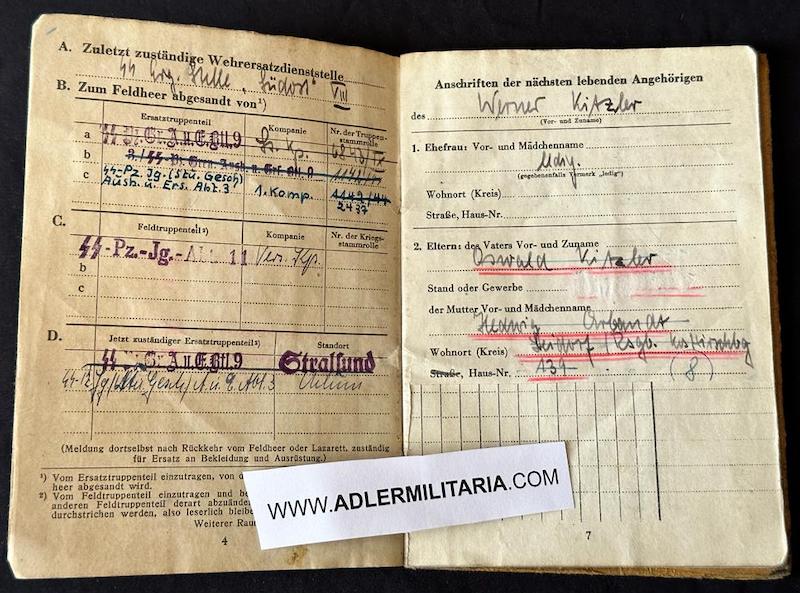 A. Zuletzt zuständige Wehrersatzdienststelle
SS Erg. Stelle „Südost" VIII
B. Zum Feldheer abgesandt von¹)
Ersatztruppenteil Kompanie Nr. der Truppen-stammrolle
a SS-Pz.Gr.A.u.E.Btl.9
b
c SS-Pz. Jg. (Stu. Gesch) 1. Komp. 1142/44
Ausb. u. Ers. Abt. 3 2437
C.
Feldtruppenteil²) Kompanie Nr. der Kriegs-stammrolle
a SS-Pz.-Jg.-Abt. 11 Vers. Kp.
b
c
D.
Jetzt zuständiger Ersatztruppenteil²) Standort
SS-Pz.Gr.A.u.E.Btl.9 Stralsund
(Meldung dortselbst nach Rückkehr vom Feldheer oder Lazarett, zuständig
für Ersatz an Bekleidung und Ausrüstung.)
¹) Vom Ersatztruppenteil einzutragen, von
heer abgesandt wird.
²) Vom Feldtruppenteil einzutragen und
anderen Feldtruppenteil derart
durchstrichen werden, also leserlich
Weiterer
4
Anschriften der nächsten lebenden Angehörigen
des Werner Kitzler
(Vor- und Zuname)
1. Ehefrau: Vor- und Mädchenname
ledig.
(gegebenenfalls Vermerk „ledig")
Wohnort (Kreis)
Straße, Haus-Nr.
2. Eltern: des Vaters Vor- und Zuname
Oswald Kitzler
Stand oder Gewerbe
der Mutter Vor- und Mädchenname
Hedwig
Wohnort (Kreis)
Straße, Haus-Nr. 131 (8)
7
WWW.ADLERMILITARIA.COM